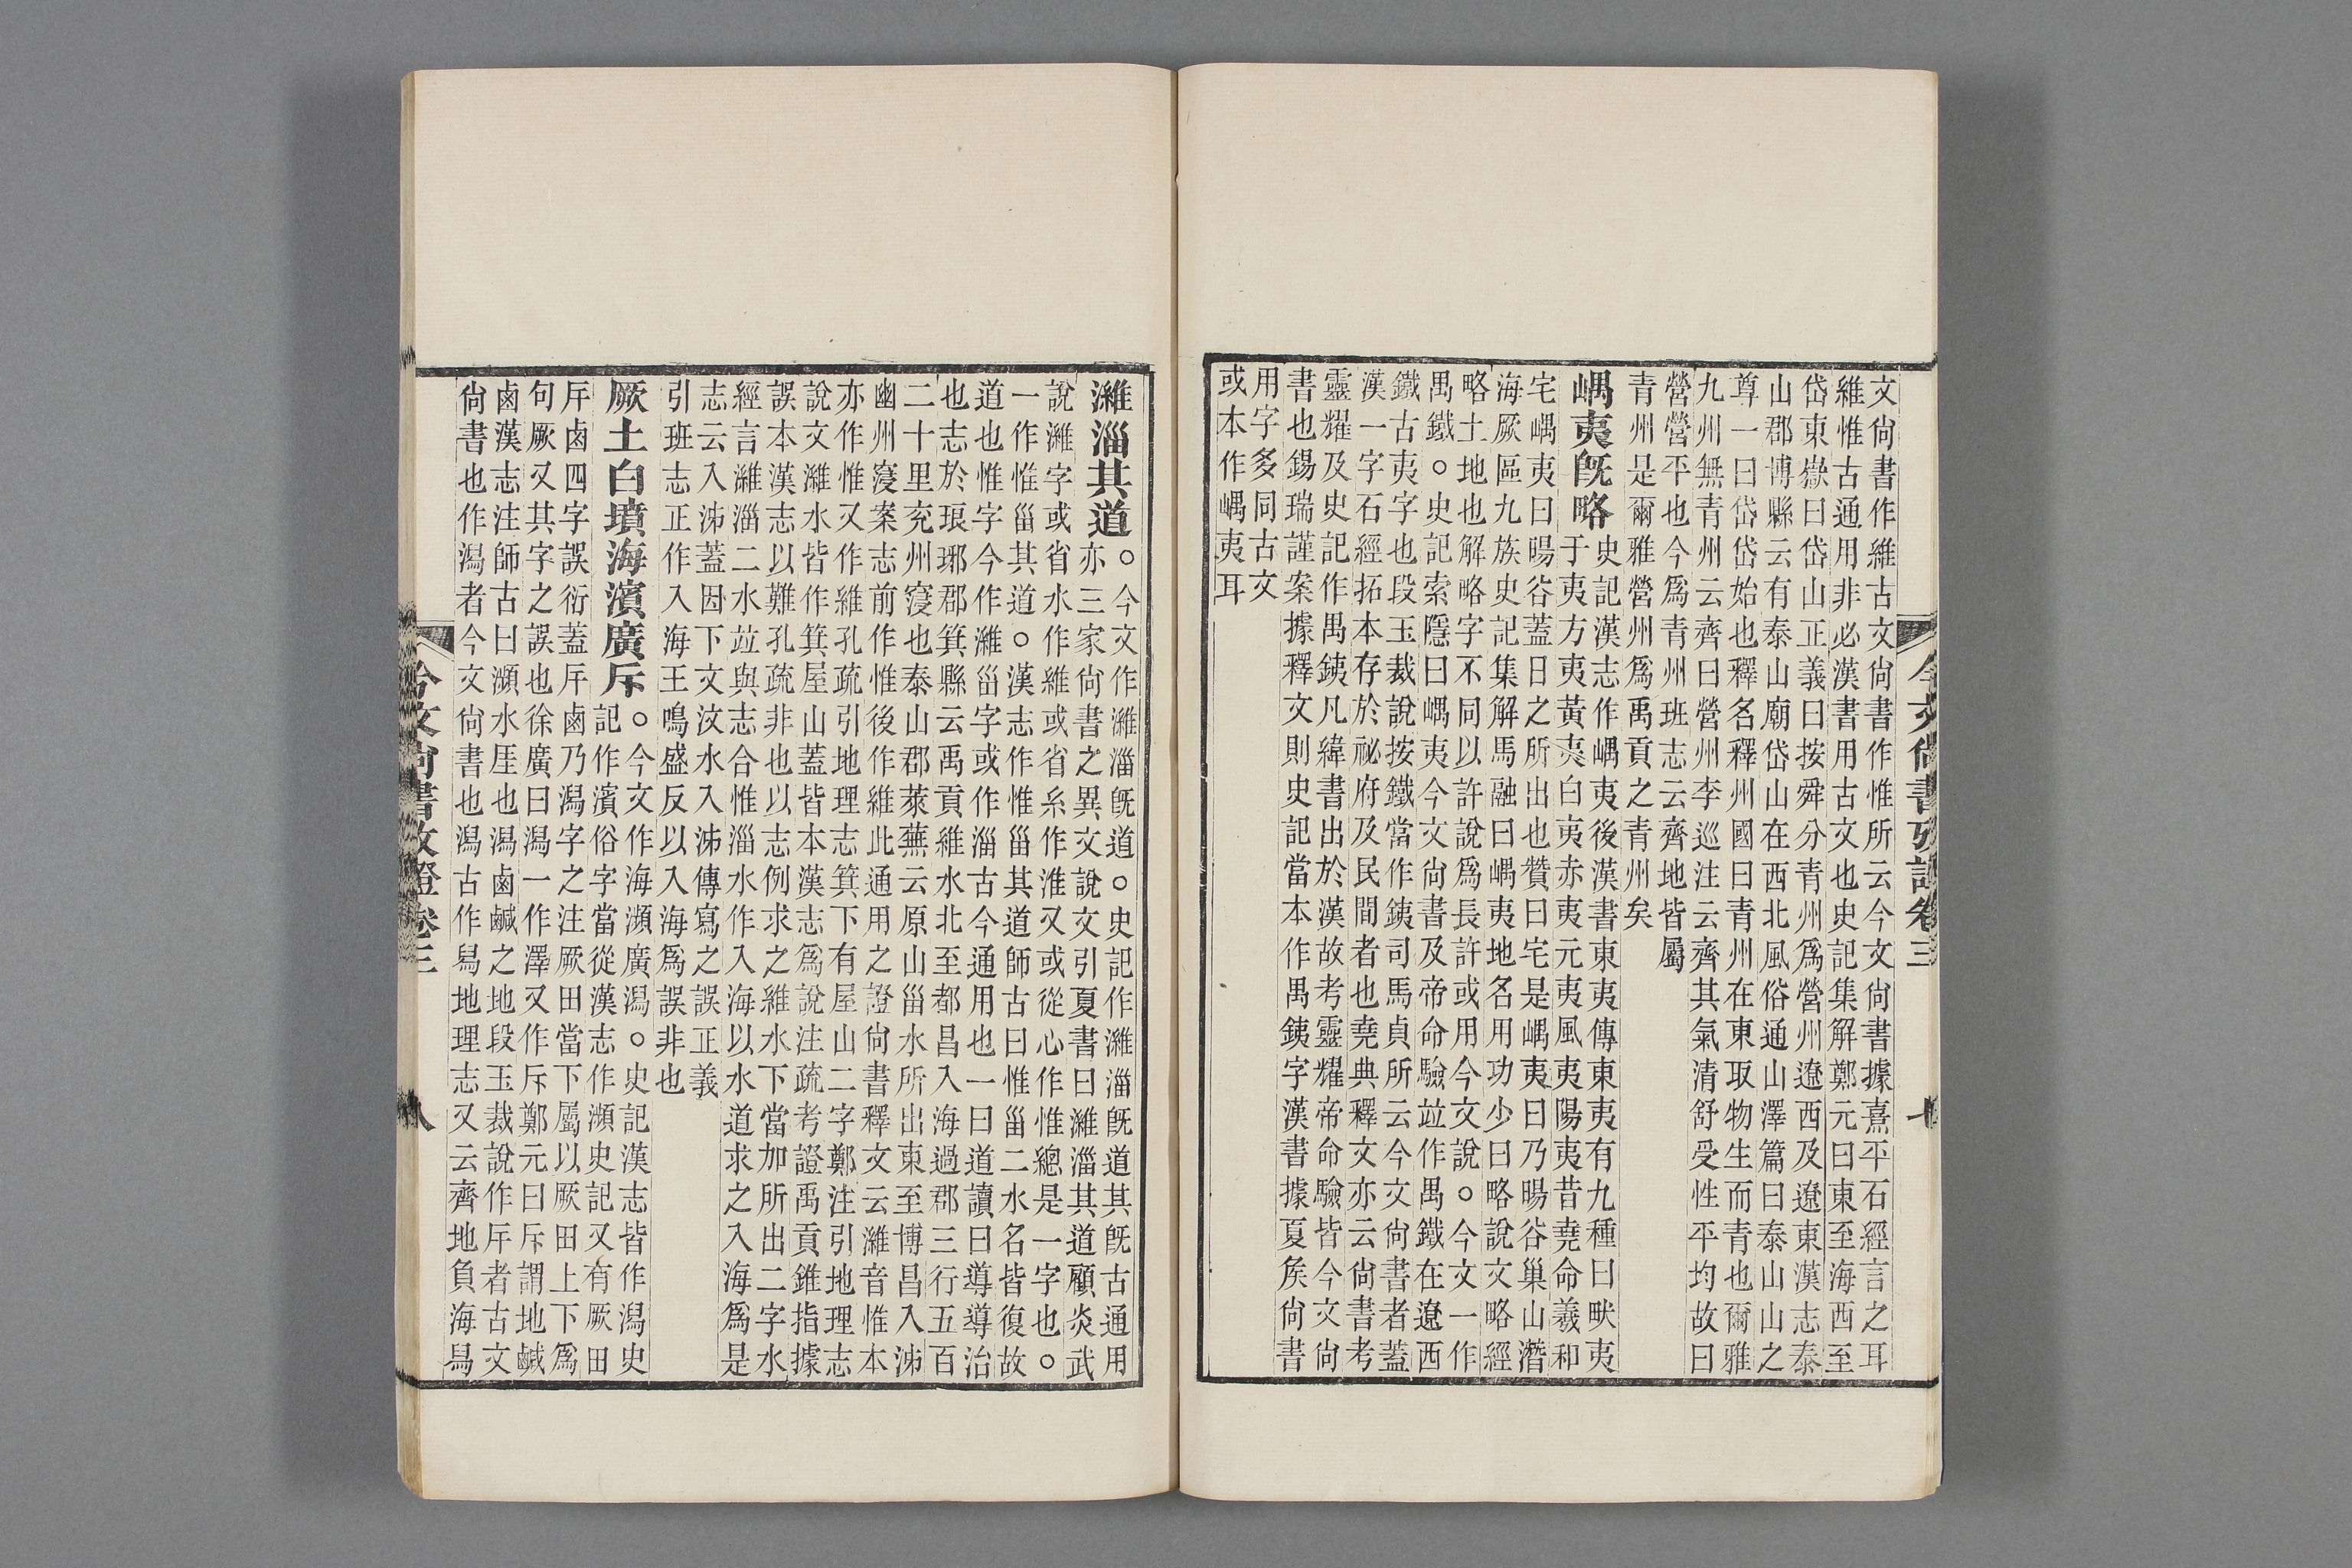 今文尚書攷證卷三
七
文尙書作維古文尙書作惟所云今文尙書據熹平石經言之耳
維惟古通用非必漢書用古文也史記集解鄭元曰東至海西至
岱東嶽曰岱山正義曰按舜分青州爲營州遼西及遼東漢志泰
山郡博縣云有泰山廟岱山在西北風俗通山澤篇曰泰山山之
尊一曰岱岱始也釋名釋州國曰青州在東取物生而青也爾雅
九州無青州云齊曰營州李巡注云齊其氣清舒受性平均故曰
營營平也今爲青州班志云齊地皆屬
青州是爾雅營州爲禹貢之青州矣
嵎夷旣略
史記漢志作嵎夷後漢書東夷傳東夷有九種曰畎夷
于夷方夷黃夷白夷赤夷元夷風夷陽夷昔堯命羲和
宅嵎夷曰暘谷蓋日之所出也贊曰宅是嵎夷曰乃暘谷巢山潛
海厥區九族史記集解馬融曰嵎夷地名用功少曰略說文略經
略土地也解略字不同以許說爲長許或用今文說。今文一作
禺鐵。史記索隱曰嵎夷今文尙書及帝命驗竝作禺鐵在遼西
鐵古夷字也段玉裁說按鐵當作銕司馬貞所云今文尙書者蓋
漢一字石經拓本存於祕府及民間者也堯典釋文亦云尙書考
靈耀及史記作禺銕凡緯書出於漢故考靈耀帝命驗皆今文尙
書也錫瑞謹案據釋文則史記當本作禺銕字漢書據夏矦尙書
用字多同古文
或本作嵎夷耳
濰淄其道
。今文作濰淄旣道。史記作濰淄旣道其旣古通用
亦三家尙書之異文說文引夏書曰濰淄其道顧炎武
說濰字或省水作維或省糸作淮又或從心作惟總是一字也。
一作惟甾其道。漢志作惟甾其道師古曰惟甾二水名皆復故
道也惟字今作濰甾字或作淄古今通用也一曰道讀曰導導治
也志於琅邪郡箕縣云禹貢維水北至都昌入海過郡三行五百
二十里兗州寖也泰山郡萊蕪云原山甾水所出東至博昌入泲
幽州寖案志前作惟後作維此通用之證尙書釋文云濰音惟本
亦作惟又作維孔疏引地理志箕下有屋山二字鄭注引地理志
說文濰水皆作箕屋山蓋皆本漢志爲說注疏考證禹貢錐指據
誤本漢志以難孔疏非也以志例求之維水下當加所出二字水
經言濰淄二水竝與志合惟淄水作入海以水道求之入海爲是
志云入泲蓋因下文汶水入泲傳寫之誤正義
引班志正作入海王鳴盛反以入海爲誤非也
厥土白墳海濱廣斥
。今文作海瀕廣潟。史記漢志皆作潟史
記作濱俗字當從漢志作瀕史記又有厥田
斥鹵四字誤衍蓋斥鹵乃潟字之注厥田當下屬以厥田上下爲
句厥又其字之誤也徐廣曰潟一作澤又作斥鄭元曰斥謂地鹹
鹵漢志注師古曰瀕水厓也潟鹵鹹之地段玉裁說作斥者古文
尙書也作潟者今文尙書也潟古作舄地理志又云齊地負海舄
今文尙書攷證卷三
八